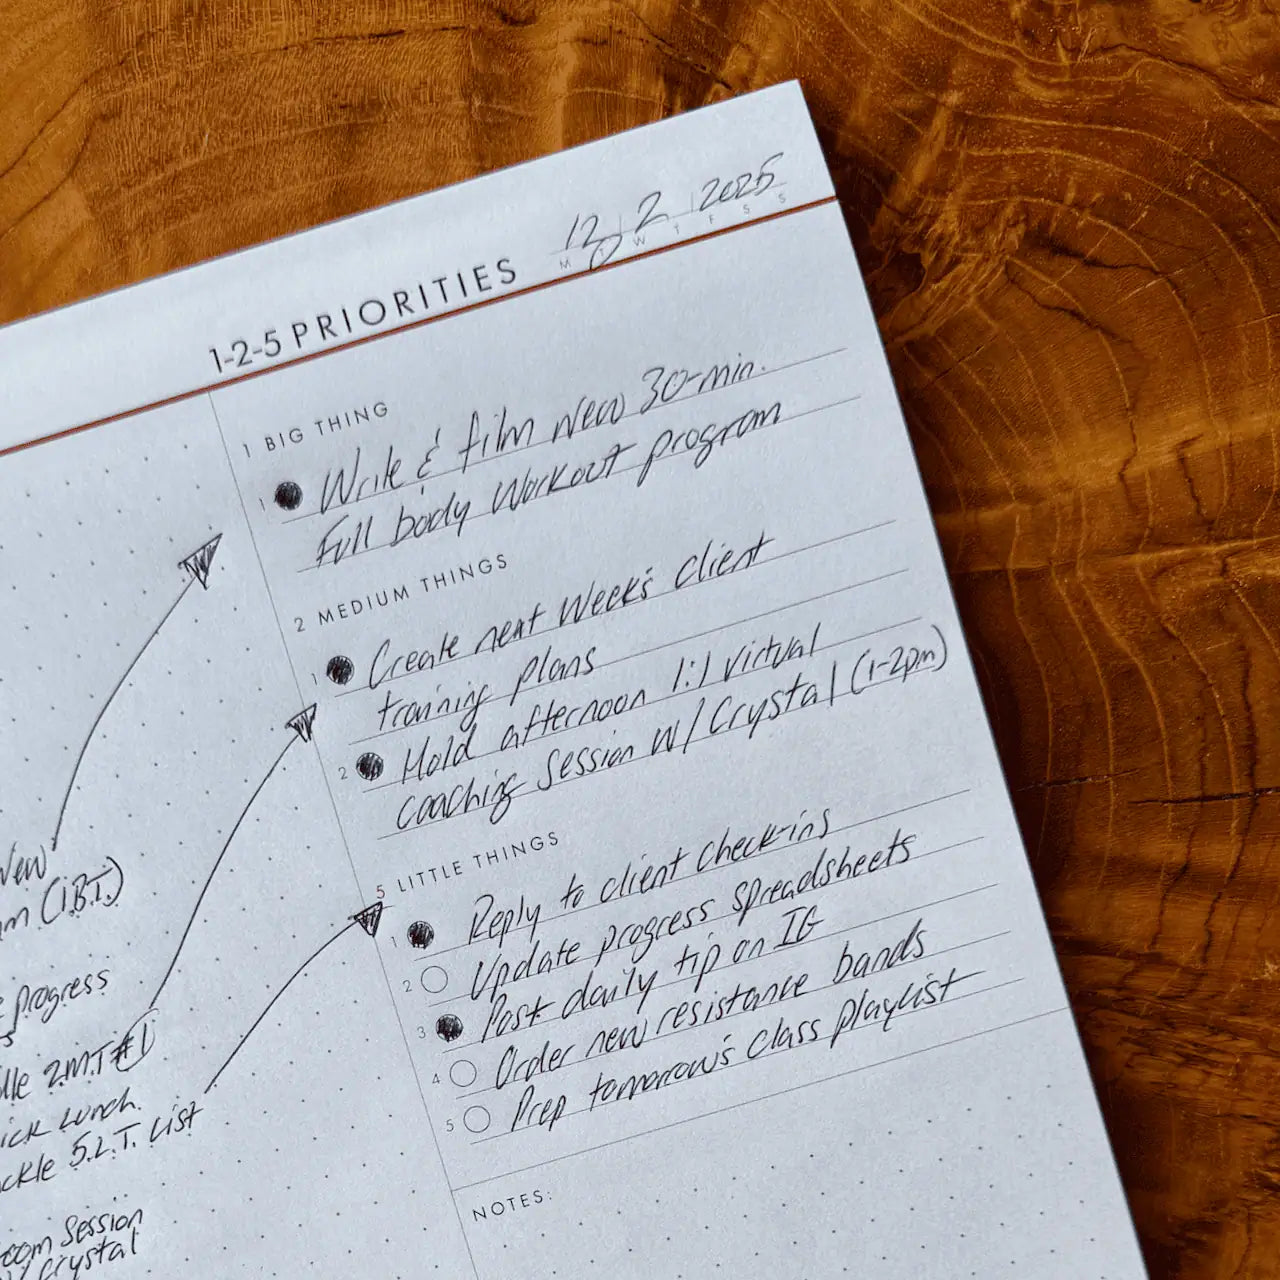 12 2 2025
M W T F S S
1-2-5 PRIORITIES
1 BIG THING
1 Write & film New 30-min.
Full body Workout program
2 MEDIUM THINGS
1 Create next Week's Client
training plans
2 Hold afternoon 1:1 Virtual
coaching Session w/ Crystal (1-2pm)
5 LITTLE THINGS
1 Reply to client check-ins
2 Update progress spreadsheets
3 Post daily tip on IG
4 Order new resistance bands
5 Prep tomorrow's class playlist
NOTES:
New
(1.B.T.)
progress
2.M.T #1
Lunch
5.L.T. List
Session
Crystal